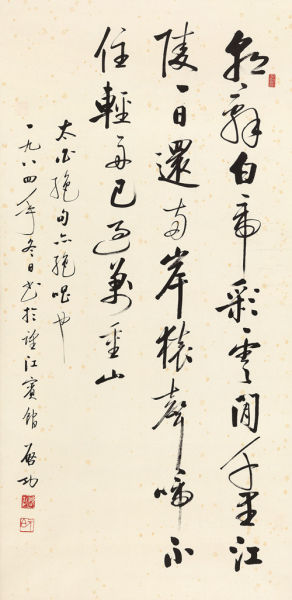 朝辭白帝彩雲間千里江
陵一日還兩岸猿聲啼不
住輕舟已過萬重山
太白絕句亦絕唱也
一九八四年冬日書於灕江賓館 啟功